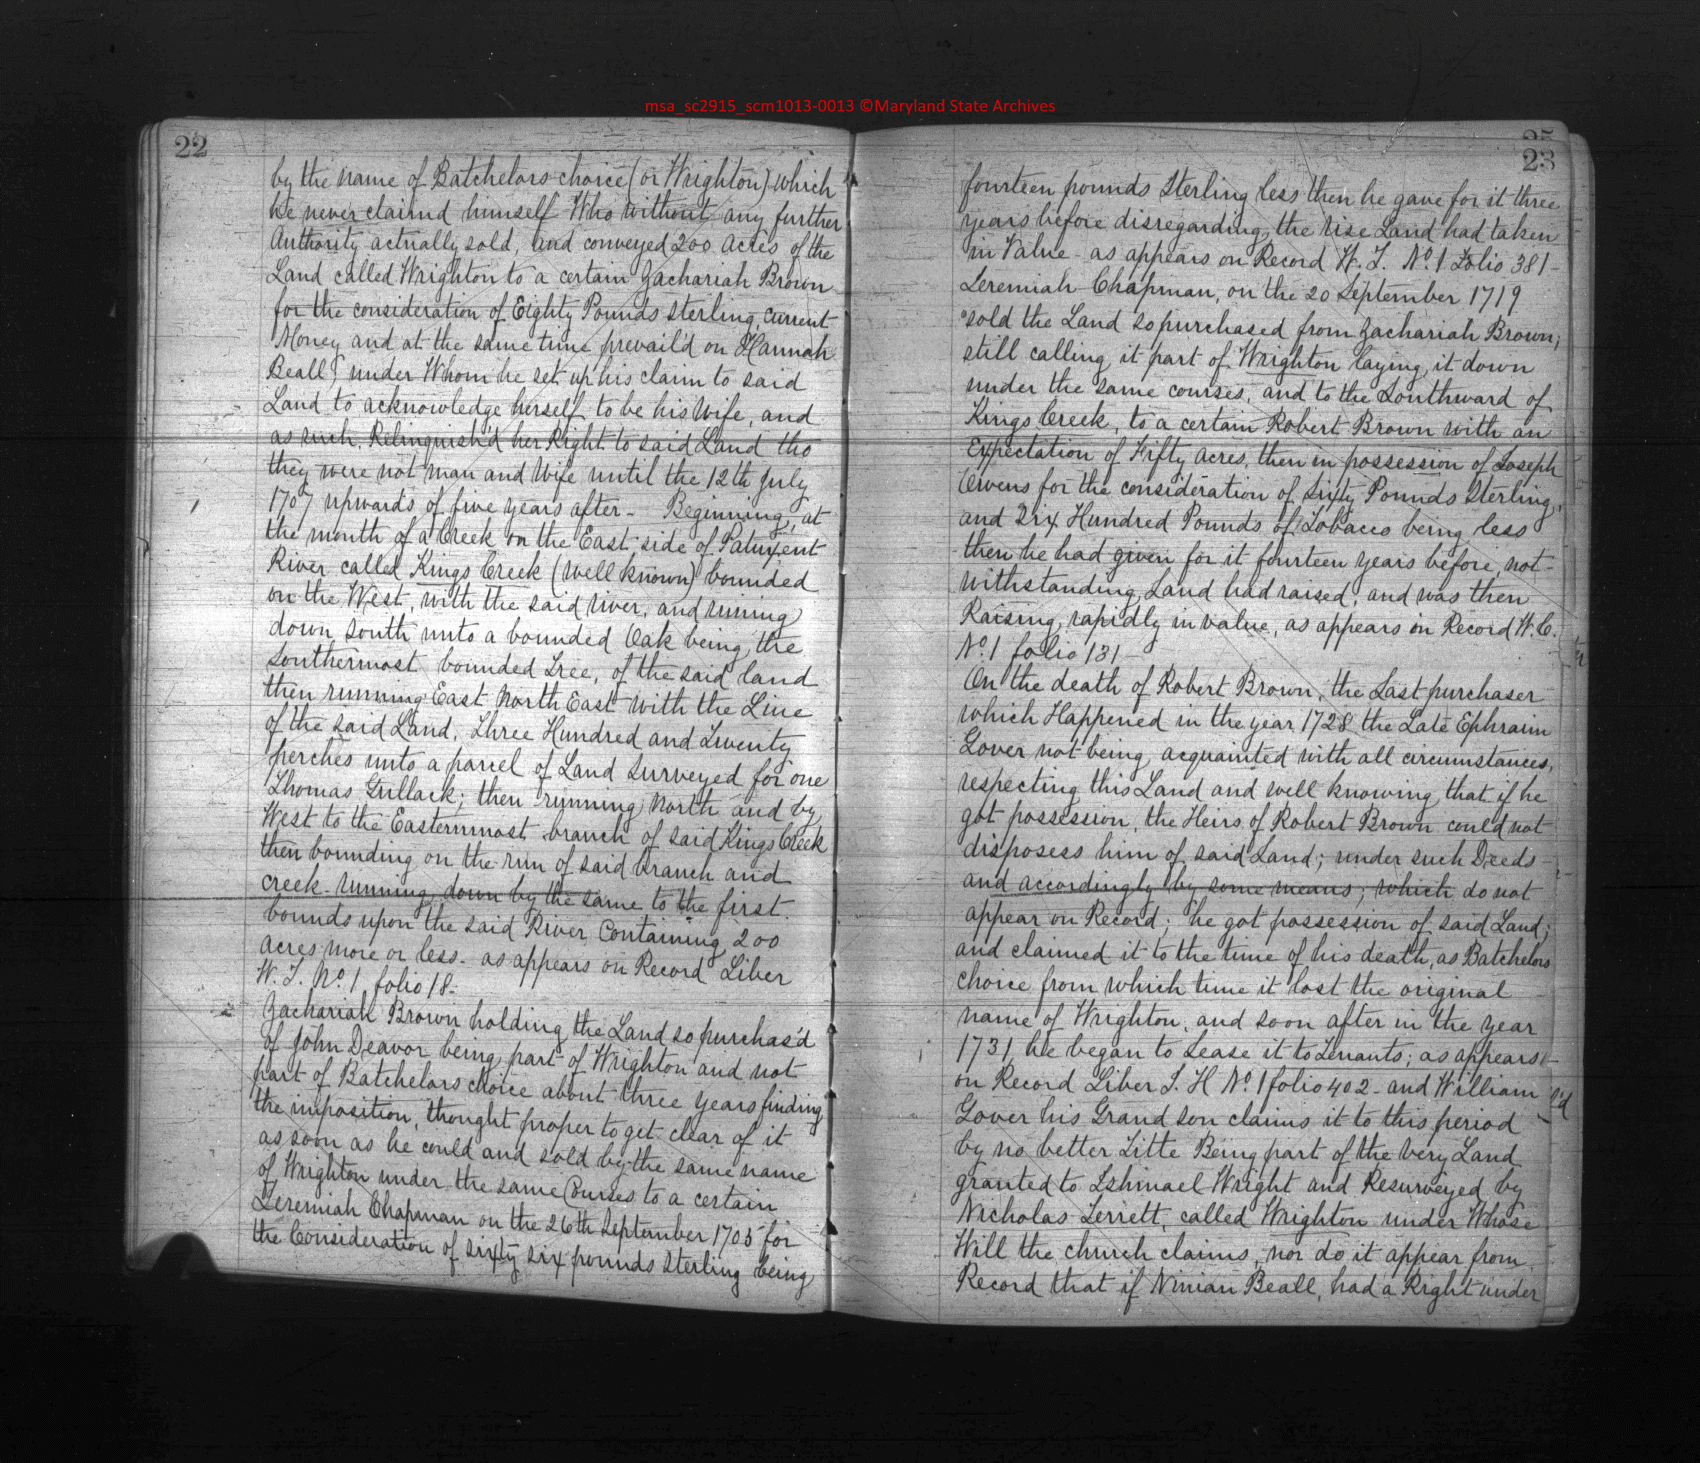 msa_sc2915_scm1013-0013 ©Maryland State Archives
22
by the name of Batchelors choice (or Wrighton) which
he never claimd himself Who without any further
Authority actually sold, and conveyed 200 acres of the
Land called Wrighton to a certain Zachariah Brown
for the consideration of Eighty Pounds sterling, current
Money and at the same time prevaild on Hannah
Beall, under Whom he set up his claim to said
Land to acknowledge herself to be his Wife, and
as such, Relinquish'd her Right to said Land tho
they were not man and Wife until the 12th July
1707 upwards of five years after - Beginning, at
the mouth of a Creek on the East side of Patuxent
River called Kings Creek (well known) bounded
on the West, with the said river, and runing
down South unto a bounded Oak being the
Southermost bounded Tree, of the said land
then running East North East with the Line
of the said Land, Three Hundred and Twenty
perches unto a parcel of Land Surveyed for one
Thomas Gullack; then running North and by
West to the Easternmost branch of said Kings Creek
then bounding on the run of said branch and
creek running down by the same to the first
bounds upon the said River Containing 200
acres more or less - as appears on Record Liber
W. T. No. 1 folio 18 -
Zachariah Brown holding the Land so purchas'd
of John Deavor being part of Wrighton and not
part of Batchelors choice about three years finding
the imposition, thought proper to get clear of it
as soon as he could and sold by the same name
of Wrighton under the same Courses to a certain
Jeremiah Chapman on the 26th September 1705 for
the Consideration of sixty six pounds sterling being
25
23
fourteen pounds Sterling less then he gave for it three
years before disregarding the rise Land had taken
in Value - as appears on Record W. T. No. 1 Folio 381 -
Jeremiah Chapman, on the 20 September 1719
sold the Land so purchased from Zachariah Brown,
still calling it part of Wrighton laying it down
under the same courses, and to the Southward of
Kings Creek, to a certain Robert Brown with an
Expectation of Fifty acres, then in possession of Joseph
Owens for the consideration of Sixty Pounds Sterling,
and Six Hundred Pounds of Tobacco being less
then he had given for it fourteen years before, not -
withstanding Land had raised, and was then
Raising, rapidly in value, as appears on Record W. C.
No. 1 folio 131 -
On the death of Robert Brown, the Last purchaser
which Happened in the year 1728 the Late Ephraim
Gover not being acquainted with all circumstances,
respecting this Land and well knowing that if he
got possession, the Heirs of Robert Brown could not
disposess him of said Land; under such Deeds -
and accordingly by some means; which do not
appear on Record; he got possession of said Land;
and claimed it to the time of his death, as Batchelors
choice from which time it lost the original
name of Wrighton, and soon after in the year
1731 he began to Lease it to Tenants; as appears
on Record Liber I. H No. 1 folio 402 - and William
Gover his Grand son claims it to this period
by no better Titte Being part of the very Land
granted to Ishmael Wright and Resurveyed by
Nicholas Terrett, called Wrighton under Whose
Will the church claims, nor do it appear from
Record that if Ninian Beall, had a Right under